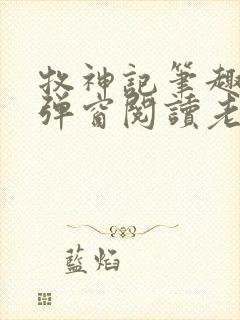 牧神記筆趣
彈窗閱讀老
藍焰